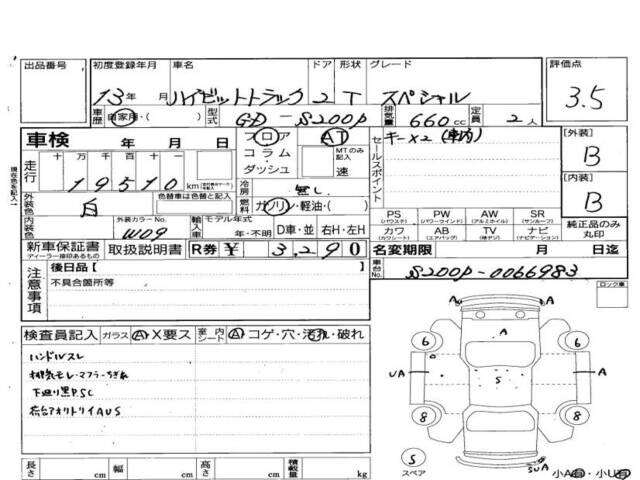 出品番号 初度登録年月 車名 ドア 形状 グレード 評価点
13年 月 ハイゼットトラック 2 T スペシャル 3.5
車歴 自家用・( ) 型式 GD-S200P 排気量 660cc 定員 2人
車検 年 月 日 フロア AT キー×2 (車内) [外装]
走行 十 万 千 百 十 コラム MTのみ記入 セールスポイント B
19510km ダッシュ 速 [内装]
外装色 白 色替車は色替と記入 冷房 無し B
燃料 ガソリン・軽油・( ) PS PW AW SR 純正品のみ丸印
(パワステ) (パワーウインド) (アルミホイル) (サンルーフ)
内装色 外装カラーNo. W09 輸入車 モデル年式 年・不明 D車・並 右H・左H カワ AB TV ナビ
(カワシート) (エアバッグ) (純テレビ) (ナビゲーション)
新車保証書 取扱説明書 R券 ¥ 3,290 名変期限 月 日迄
ディーラー捺印あるもの
注意事項 後日品[ ] 車台No. S200P-0066983
不具合箇所等 ロック車
検査員記入 ガラス A・X要ス 室内シート A・コゲ・穴・汚れ・破れ
ハンドルスレ
排気モレ・マフラーちぎれ
下廻り黒P.SC
荷台アオリトリイAUS
A A
6 6
UA S A
8 8
S
スペア SUA
小A有・小U有
長さ cm 幅 cm 高さ cm 積載量 kg
現色色を記入